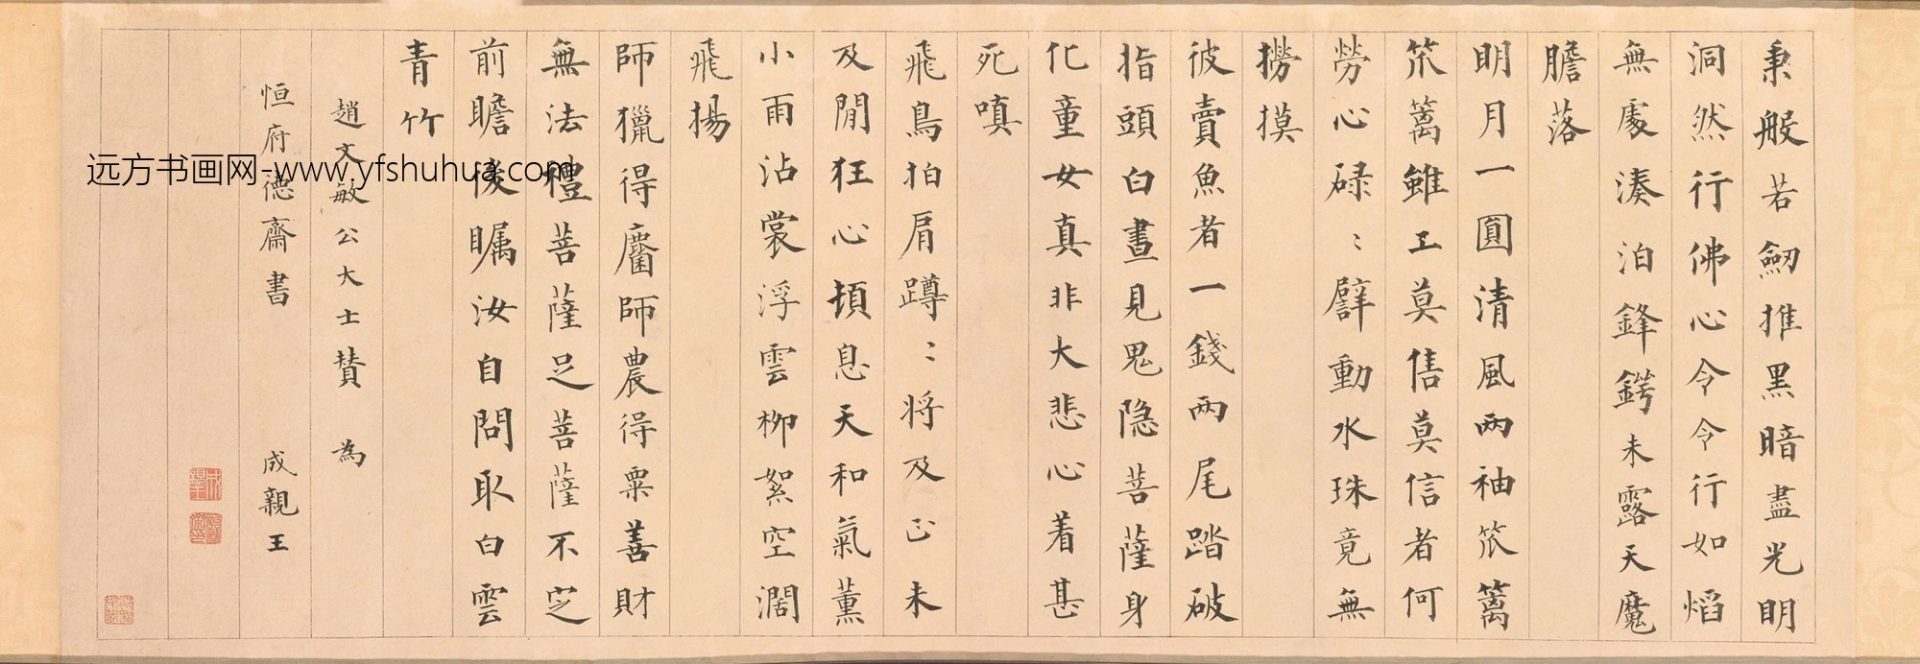 秉般若劒推黑暗盡光明
洞然行佛心令令行如熖
無處湊泊鋒鍔未露天魔
膽落
明月一圓清風兩袖笊篱
笊篱雖工莫售莫信者何
勞心碌〻劈動水珠竟無
撈摸
彼賣魚者一錢兩尾踏破
指頭白晝見鬼隐菩薩身
化童女真非大悲心着甚
死嗔
飛鳥拍肩蹲〻将及正未
及閒狂心頓息天和氣薰
小雨沾裳浮雲柳絮空濶
飛揚
師獵得麕師農得粟善財
無法禮菩薩足菩薩不
前瞻後矚汝自問取白雲
青竹
趙文敏公大士賛 為
恒府德齋書 成親王
远方书画网-www.yfshuhua.com